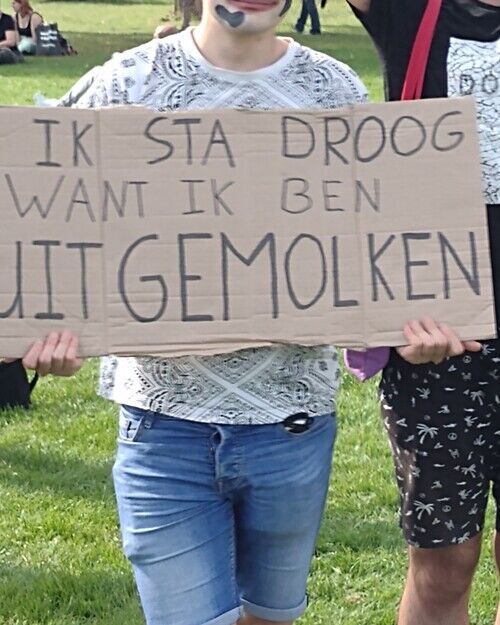 IK STA DROOG
WANT IK BEN
UITGEMOLKEN